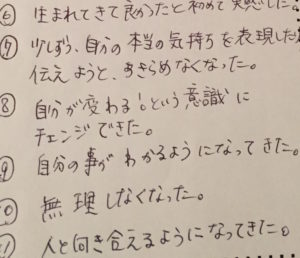 ⑥ 生まれてきて良かったと初めて実感した。
⑦ 少しずつ、自分の本当の気持ちを表現した
伝えようと、あきらめなくなった。
⑧ 自分が変わる!という意識に
チェンジできた。
⑨ 自分の事がわかるようになってきた。
⑩ 無理しなくなった。
⑪ 人と向き合えるようになってきた。